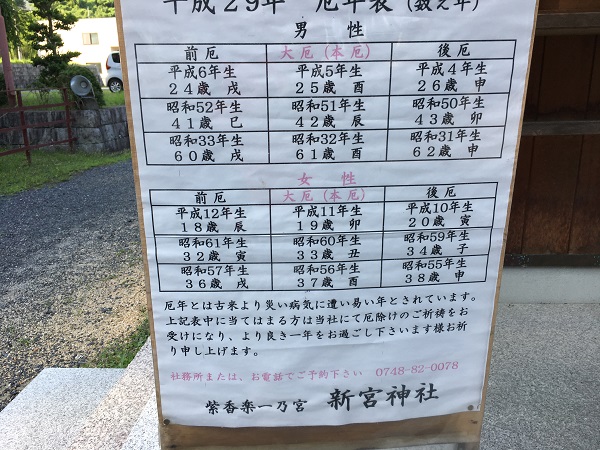 平成29年 厄年表（数え年）
男 性
前厄 大厄（本厄） 後厄
平成6年生 平成5年生 平成4年生
24歳 戌 25歳 酉 26歳 申
昭和52年生 昭和51年生 昭和50年生
41歳 巳 42歳 辰 43歳 卯
昭和33年生 昭和32年生 昭和31年生
60歳 戌 61歳 酉 62歳 申
女 性
前厄 大厄（本厄） 後厄
平成12年生 平成11年生 平成10年生
18歳 辰 19歳 卯 20歳 寅
昭和61年生 昭和60年生 昭和59年生
32歳 寅 33歳 丑 34歳 子
昭和57年生 昭和56年生 昭和55年生
36歳 戌 37歳 酉 38歳 申
厄年とは古来より災い病気に遭い易い年とされています。
上記表中に当てはまる方は当社にて厄除けのご祈祷をお
受けになり、より良き一年をお過ごし下さいます様お祈
り申し上げます。
社務所または、お電話でご予約下さい 0748-82-0078
紫香楽一乃宮 新宮神社